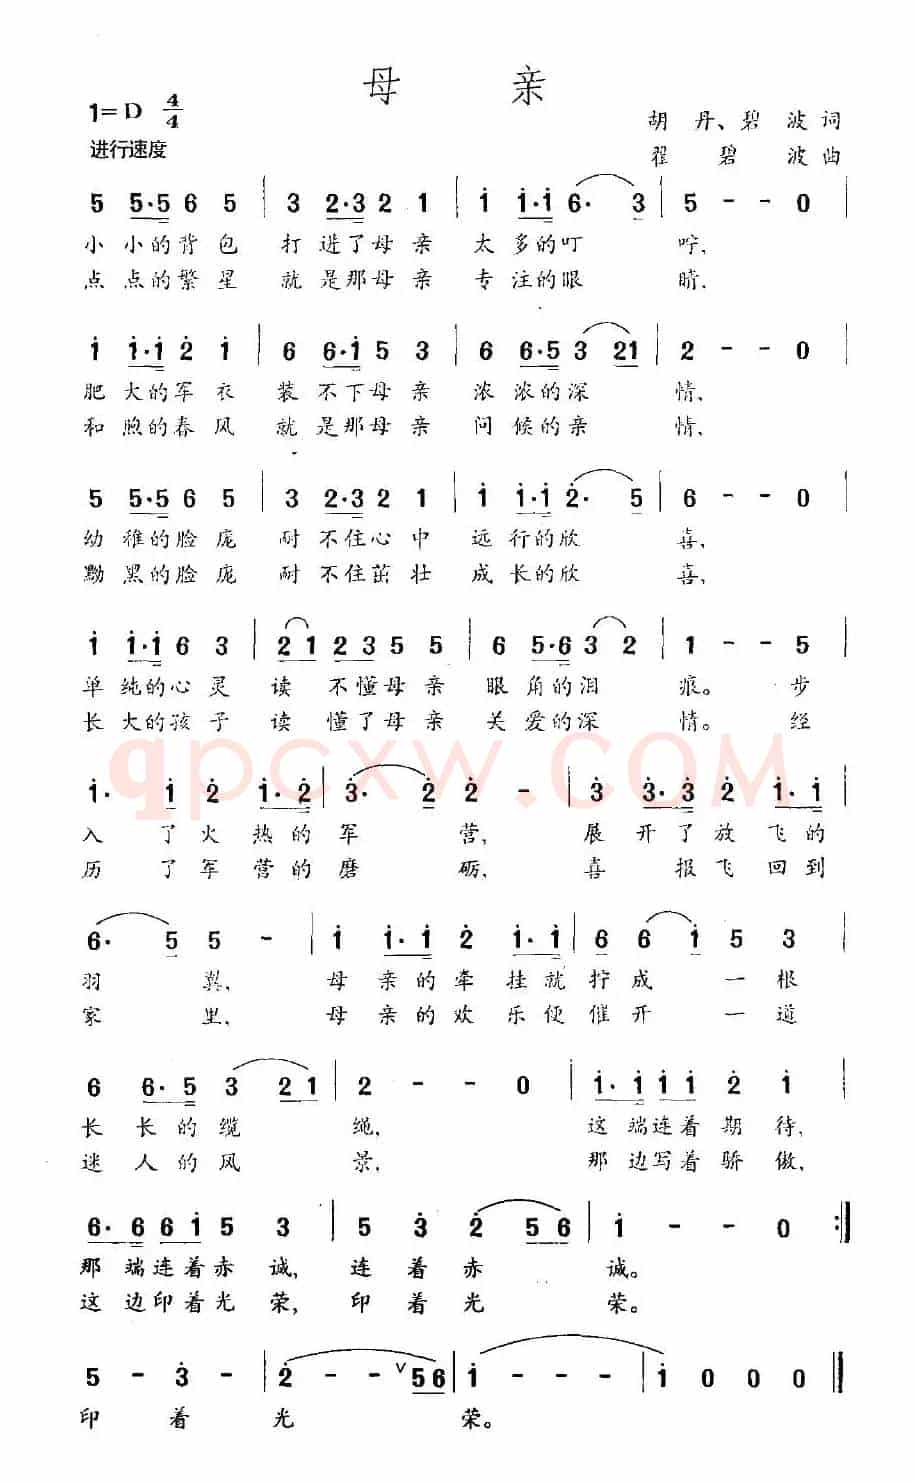 母 亲
1=D 4/4
胡 丹、碧 波 词
进行速度
翟 碧 波 曲
5 5·5 6 5 | 3 2·3 2 1 | i i·i 6· 3 | 5 - - 0 |
小 小的背 包 打 进了母 亲 太 多的叮 咛,
点 点的繁 星 就 是那母 亲 专 注的眼 睛,
i i·i 2 i | 6 6·i 5 3 | 6 6·5 3 21 | 2 - - 0 |
肥 大的军 衣 装 不下母 亲 浓 浓的深 情,
和 煦的春 风 就 是那母 亲 问 候的亲 情,
5 5·5 6 5 | 3 2·3 2 1 | i i·i 2· 5 | 6 - - 0 |
幼 稚的脸 庞 耐 不住心 中 远 行的欣 喜,
黝 黑的脸 庞 耐 不住茁 壮 成 长的欣 喜,
i i·i 6 3 | 2 1 2 3 5 5 | 6 5·6 3 2 | 1 - - 5 |
单 纯的心 灵 读 不懂母 亲 眼 角的泪 痕。 步
长 大的孩 子 读 懂了母 亲 关 爱的深 情。 经
qpcxw.COM
i· i 2 i·2 | 3· 2 2 - | 3 3·3 2 i·i |
入 了 火 热 的 军 营, 展 开 了 放 飞 的
历 了 军 营 的 磨 砺, 喜 报 飞 回 到
6· 5 5 - | i i·i 2 i·i | 6 6 i 5 3 |
羽 翼, 母 亲 的 牵 挂 就 拧 成 一 根
家 里, 母 亲 的 欢 乐 便 催 开 一 道
6 6·5 3 21 | 2 - - 0 | i·i i i 2 i |
长 长 的 缆 绳, 这 端连着 期 待,
迷 人 的 风 景, 那 边写着 骄 傲,
6·6 6 i 5 3 | 5 3 2 56 | i - - 0 :‖
那 端连着赤 诚, 连 着 赤 诚。
这 边印着光 荣, 印 着 光 荣。
5 - 3 - | 2 - - ∨ 56 | i - - - | i 0 0 0 ‖
印 着 光 荣。